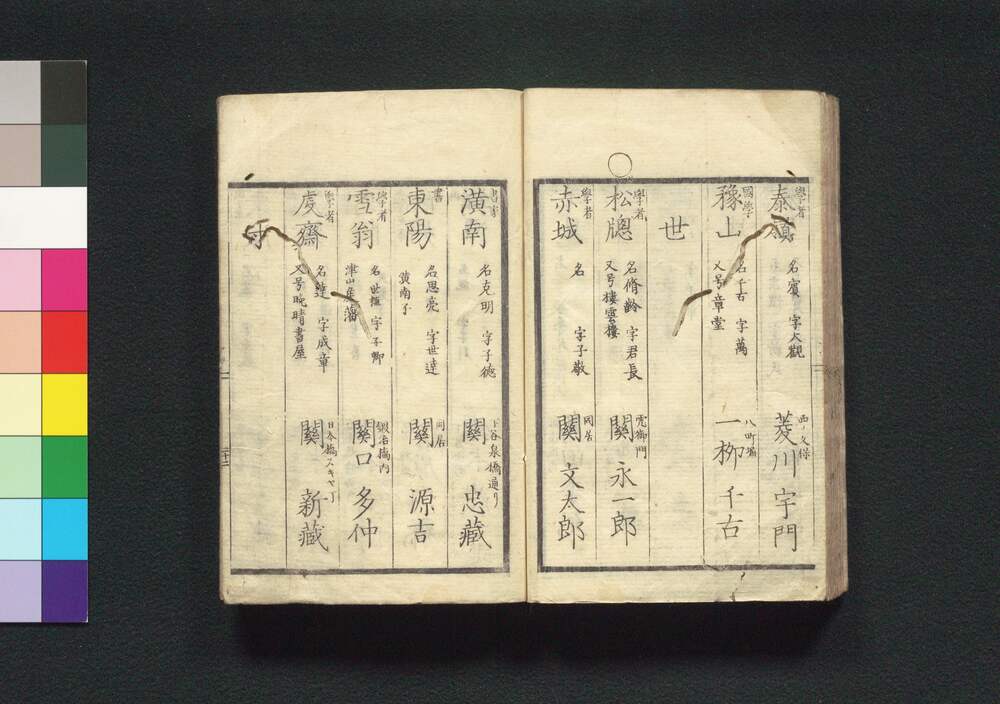 學者
泰嶺
名賓 字大觀
西ノ久保
菱川宇門
國學
豫山
名千古 字萬
又号章堂
八町堀
一栁千古
世
學者
松牎
名脩齡 字君長
又号樓雲樓
虎御門
關永一郎
學者
赤城
名 字子敬
同居
關文太郎
書家
潢南
名克明 字子德
下谷泉橋通リ
關忠藏
書
東陽
名思亮 字世達
黄南子
同居
關源吉
學者
雪翁
字子卿
津山矦藩
鍛冶橋内
關口多仲
學者
虔齋
字成章
又号晩晴書屋
日本橋スキヤ丁
關新藏